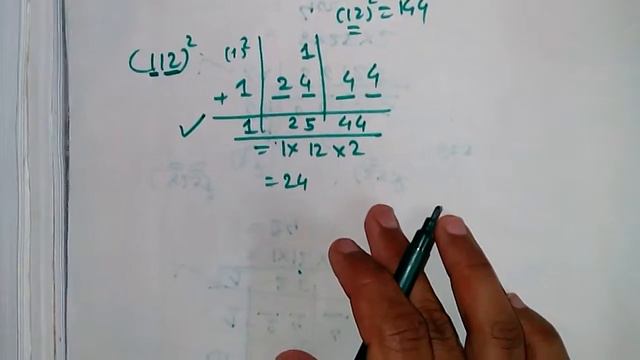 (12)² = 144
(112)² (1)² 1
+ 1 24 44
✓ 1 25 44
= 1 × 12 × 2
= 24